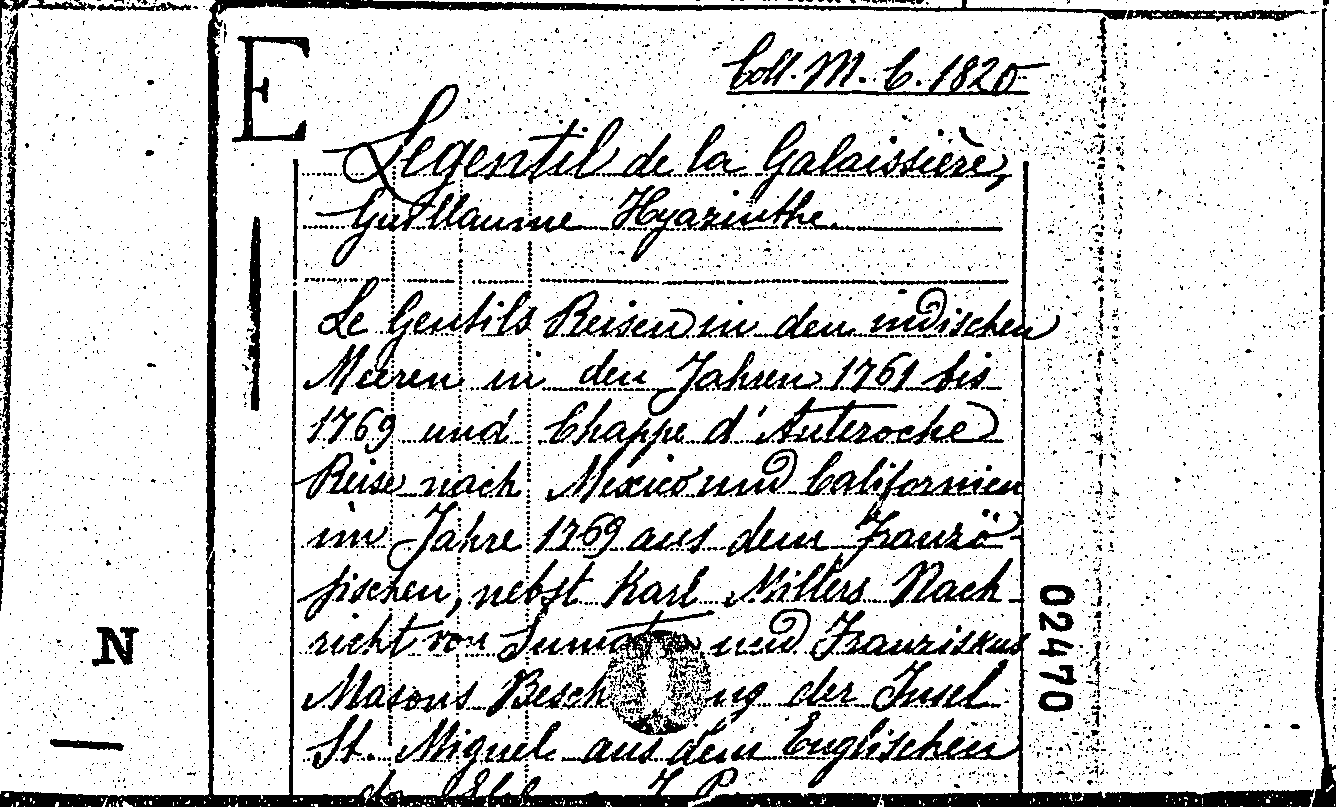 E
Coll. M. C. 1820
Legentil de la Galaissière,
Guillaume Hyazinthe.
Le Gentils Reisen in den indischen
Meeren in den Jahren 1761 bis
1769 und Chappe d'Auteroche
Reise nach Mexico und Californien
im Jahre 1769 aus dem Franzö-
sischen, nebst Karl Millers Nach-
richt von Sumatra und Franziskus
Masons Besch ng der Insel
St. Miguel aus dem Englischen
02470
N